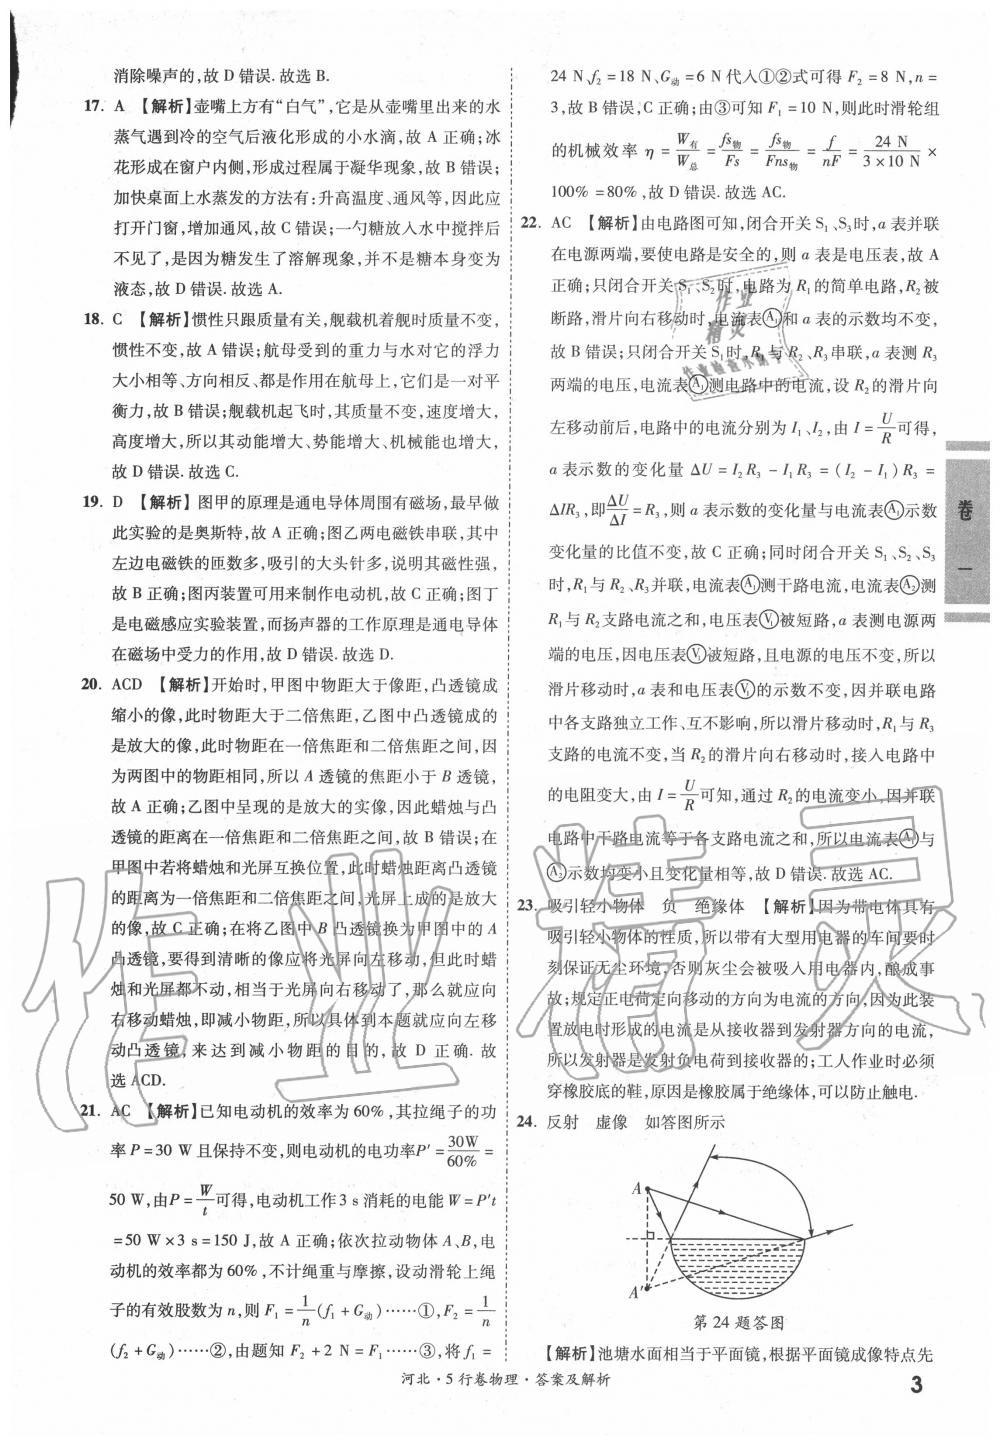 消除噪声的,故 D 错误. 故选 B.
17. A 【解析】壶嘴上方有“白气”,它是从壶嘴里出来的水
蒸气遇到冷的空气后液化形成的小水滴,故 A 正确;冰
花形成在窗户内侧,形成过程属于凝华现象,故 B 错误;
加快桌面上水蒸发的方法有:升高温度、通风等,因此应
打开门窗,增加通风,故 C 错误;一勺糖放入水中搅拌后
不见了,是因为糖发生了溶解现象,并不是糖本身变为
液态,故 D 错误. 故选 A.
18. C 【解析】惯性只跟质量有关,舰载机着舰时质量不变,
惯性不变,故 A 错误;航母受到的重力与水对它的浮力
大小相等、方向相反、都是作用在航母上,它们是一对平
衡力,故 B 错误;舰载机起飞时,其质量不变,速度增大,
高度增大,所以其动能增大、势能增大、机械能也增大,
故 D 错误. 故选 C.
19. D 【解析】图甲的原理是通电导体周围有磁场,最早做
此实验的是奥斯特,故 A 正确;图乙两电磁铁串联,其中
左边电磁铁的匝数多,吸引的大头针多,说明其磁性强,
故 B 正确;图丙装置可用来制作电动机,故 C 正确;图丁
是电磁感应实验装置,而扬声器的工作原理是通电导体
在磁场中受力的作用,故 D 错误. 故选 D.
20. ACD 【解析】开始时,甲图中物距大于像距,凸透镜成
缩小的像,此时物距大于二倍焦距,乙图中凸透镜成的
是放大的像,此时物距在一倍焦距和二倍焦距之间,因
为两图中的物距相同,所以 A 透镜的焦距小于 B 透镜,
故 A 正确;乙图中呈现的是放大的实像,因此蜡烛与凸
透镜的距离在一倍焦距和二倍焦距之间,故 B 错误;在
甲图中若将蜡烛和光屏互换位置,此时蜡烛距离凸透镜
的距离为一倍焦距和二倍焦距之间,光屏上成的是放大
的像,故 C 正确;在将乙图中 B 凸透镜换为甲图中的 A
凸透镜,要得到清晰的像应将光屏向左移动,但此时蜡
烛和光屏都不动,相当于光屏向右移动了,那么就应向
右移动蜡烛,即减小物距,所以具体到本题就应向左移
动凸透镜,来达到减小物距的目的,故 D 正确. 故
选 ACD.
21. AC 【解析】已知电动机的效率为 60%,其拉绳子的功
率 P = 30 W 且保持不变,则电动机的电功率P′ = 30W/60% =
50 W,由P = W/t 可得,电动机工作3 s 消耗的电能 W = P′t
= 50 W × 3 s = 150 J,故 A 正确;依次拉动物体 A、B,电
动机的效率都为 60%,不计绳重与摩擦,设动滑轮上绳
子的有效股数为 n,则 F₁ = 1/n (f₁ + G动)……①,F₂ = 1/n
(f₂ + G动)……②,由题知 F₂ + 2 N = F₁……③,将 f₁ =
24 N、f₂ = 18 N、G动 = 6 N 代入①②式可得 F₂ = 8 N,n =
3,故 B 错误,C 正确;由③可知 F₁ = 10 N,则此时滑轮组
的机械效率 η = W有/W总 = fs物/Fs = fs物/Fns物 = f/nF = 24 N/3 × 10 N ×
100% = 80%,故 D 错误. 故选 AC.
22. AC 【解析】由电路图可知,闭合开关 S₁、S₃时,a 表并联
在电源两端,要使电路是安全的,则 a 表是电压表,故 A
正确;只闭合开关 S₁、S₂时,电路为 R₁的简单电路,R₂被
断路,滑片向右移动时,电流表Ⓐ₁和 a 表的示数均不变,
故 B 错误;只闭合开关 S₁时,R₁与 R₂、R₃串联,a 表测 R₃
两端的电压,电流表Ⓐ₁测电路中的电流,设 R₂的滑片向
左移动前后,电路中的电流分别为 I₁、I₂,由 I = U/R 可得,
a 表示数的变化量 ΔU = I₂R₃ − I₁R₃ = (I₂ − I₁)R₃ =
ΔIR₃,即 ΔU/ΔI = R₃,则 a 表示数的变化量与电流表Ⓐ₁示数
变化量的比值不变,故 C 正确;同时闭合开关 S₁、S₂、S₃
时,R₁与 R₂、R₃并联,电流表Ⓐ₁测干路电流,电流表Ⓐ₂测
R₁与 R₂支路电流之和,电压表Ⓥ₁被短路,a 表测电源两
端的电压,因电压表Ⓥ₁被短路,且电源的电压不变,所以
滑片移动时,a 表和电压表Ⓥ₁的示数不变,因并联电路
中各支路独立工作、互不影响,所以滑片移动时,R₁与 R₃
支路的电流不变,当 R₂的滑片向右移动时,接入电路中
的电阻变大,由 I = U/R 可知,通过 R₂的电流变小,因并联
电路中干路电流等于各支路电流之和,所以电流表Ⓐ₁与
Ⓐ₂示数均变小且变化量相等,故 D 错误. 故选 AC.
23. 吸引轻小物体 负 绝缘体 【解析】因为带电体具有
吸引轻小物体的性质,所以带有大型用电器的车间要时
刻保证无尘环境,否则灰尘会被吸入用电器内,酿成事
故;规定正电荷定向移动的方向为电流的方向,因为此装
置放电时形成的电流是从接收器到发射器方向的电流,
所以发射器是发射负电荷到接收器的;工人作业时必须
穿橡胶底的鞋,原因是橡胶属于绝缘体,可以防止触电.
24. 反射 虚像 如答图所示
A
A′
第 24 题答图
【解析】池塘水面相当于平面镜,根据平面镜成像特点先
卷一
河北·5 行卷物理·答案及解析
3
作业精灵
作业
精灵
作业检查小助手